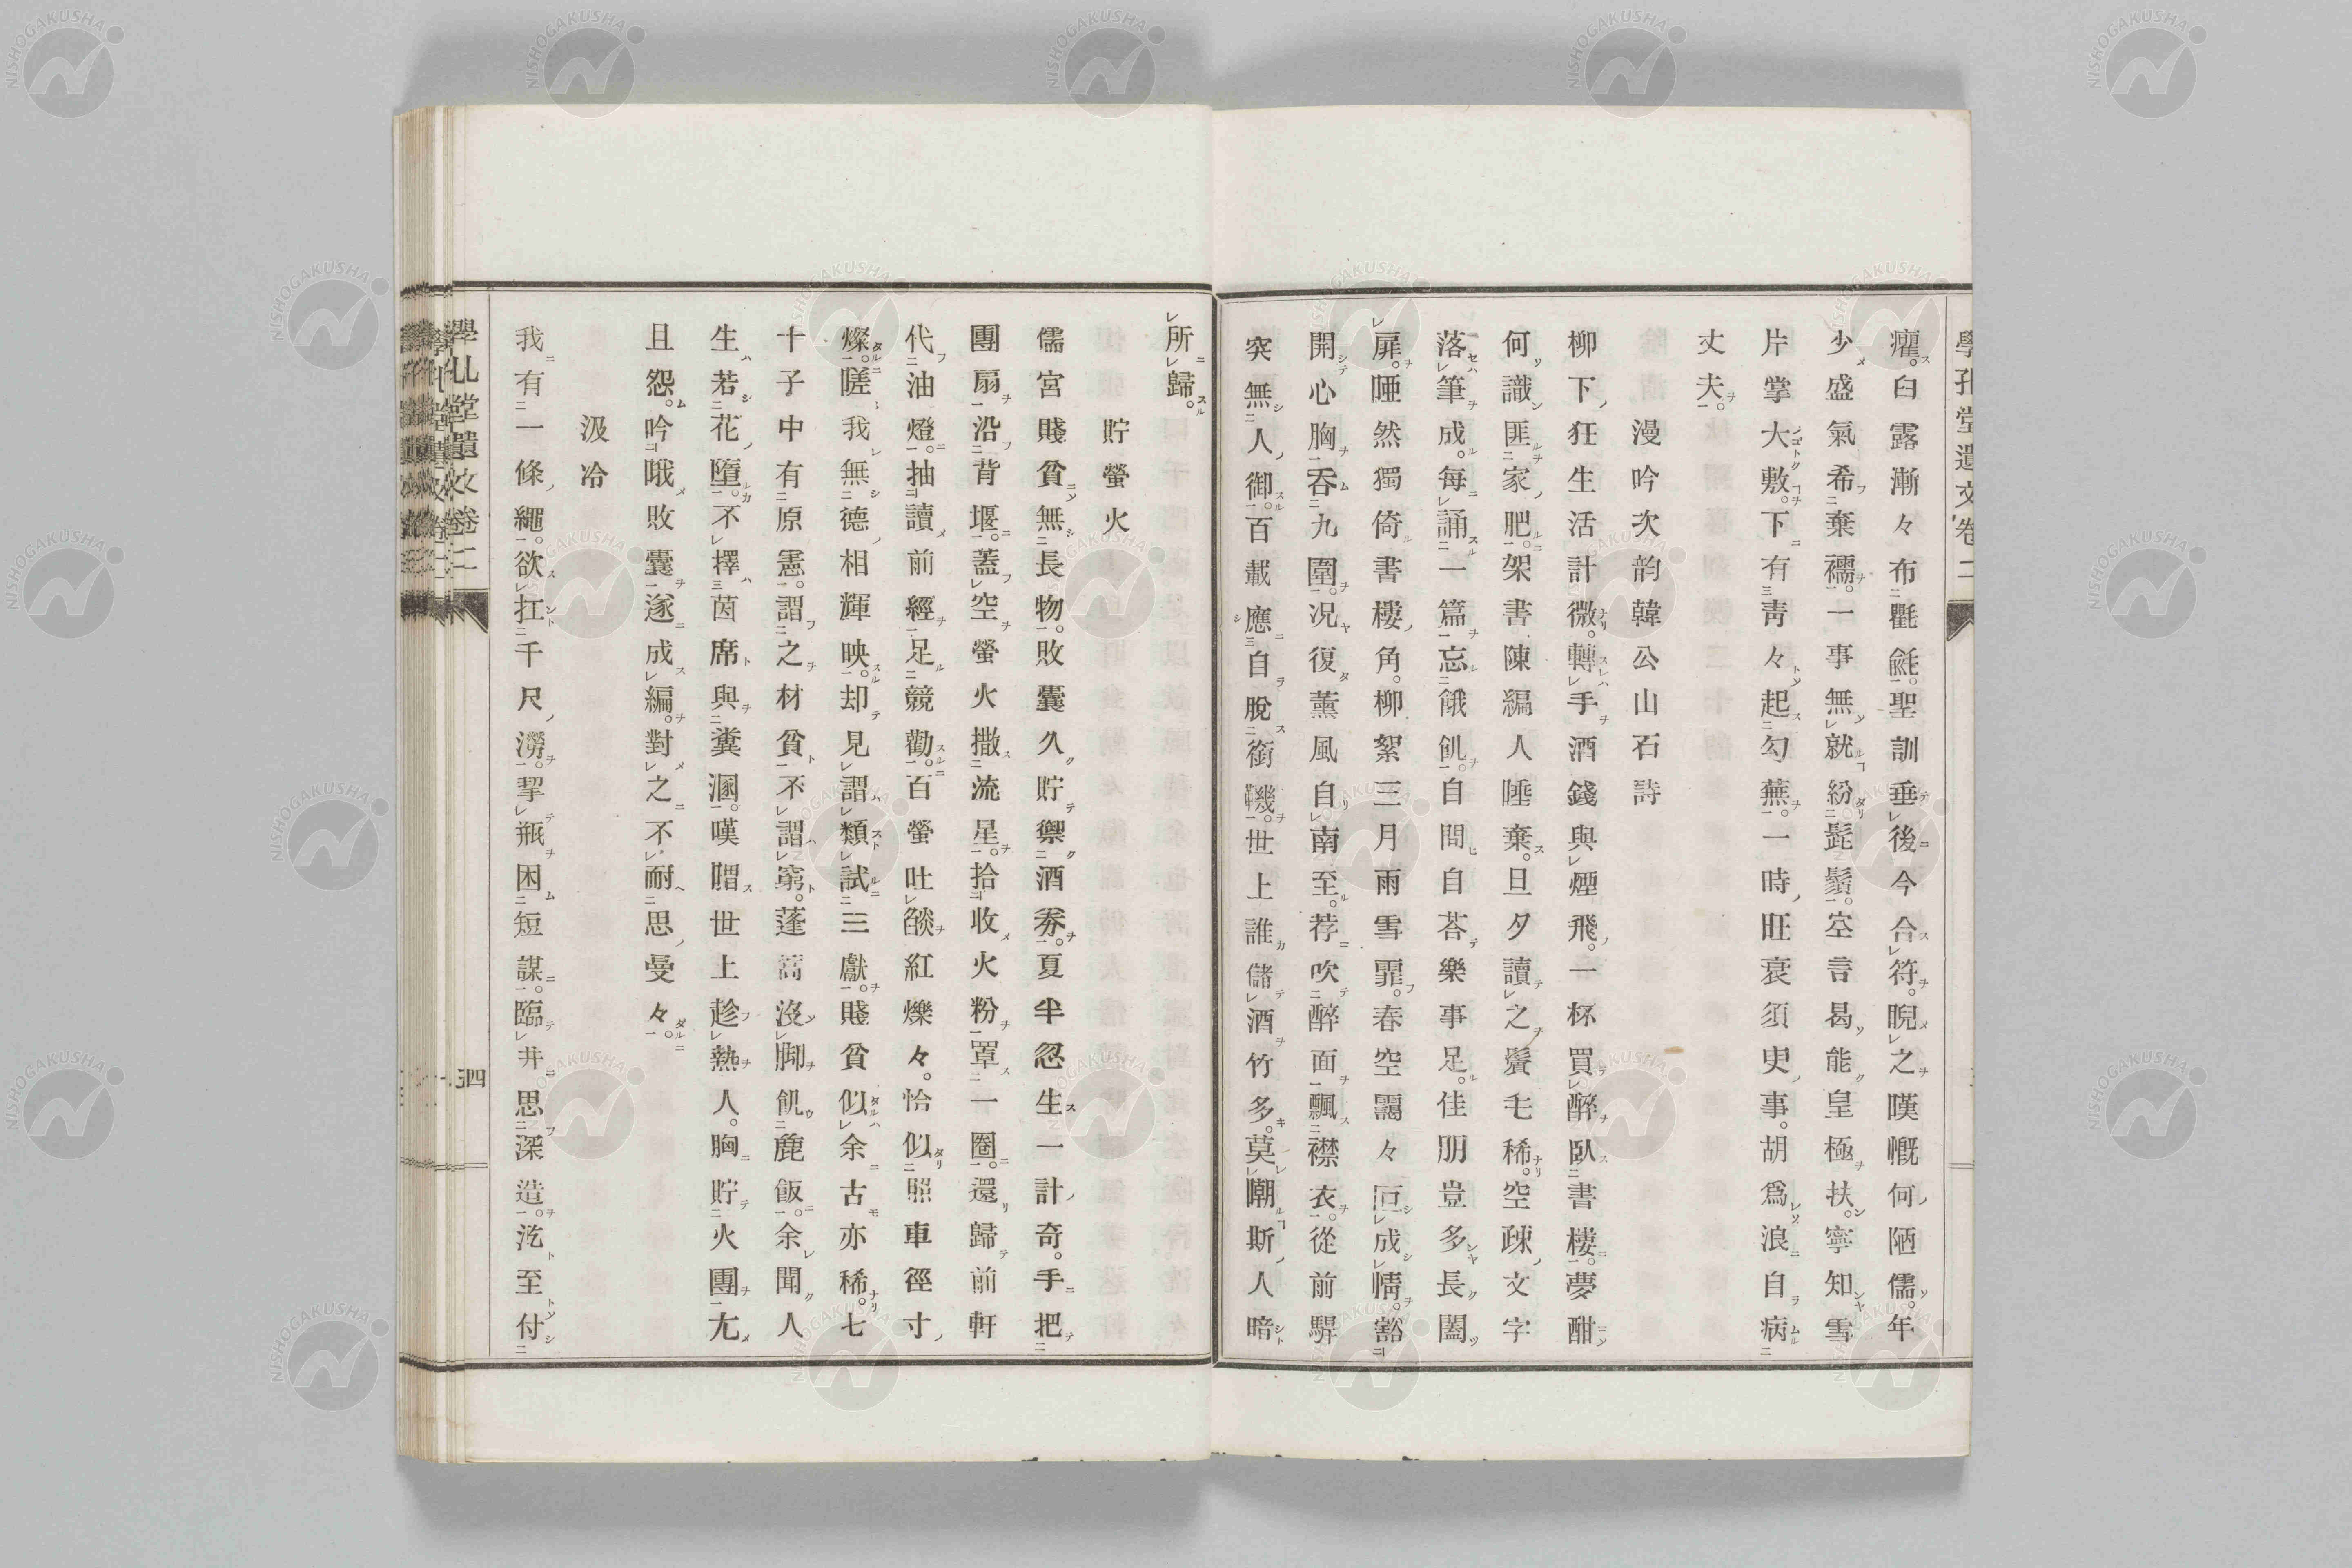 學孔堂遺文卷二
癯。白露漸々布氍毹。聖訓垂後今合符。睨之嘆慨何陋儒。年
少盛氣希棄襦。一事無就紛髭鬚。空言曷能皇極扶。寧知雪
片掌大敷。下有靑々起勾蕪。一時旺衰須臾事。胡爲浪自病
丈夫。
漫吟次韵韓公山石詩
柳下狂生活計微。轉手酒錢與煙飛。一杯買醉臥書樓。夢酣
何識匪家肥。架書陳編人唾棄。旦夕讀之鬢毛稀。空疎文字
落筆成。每誦一篇忘餓飢。自問自荅樂事足。佳朋豈多長闔
扉。唖然獨倚書樓角。柳絮三月雨雪霏。春空靄々叵成情。豁
開心胸呑九圍。况復薰風自南至。荐吹醉面飄襟衣。從前騂
突無人御。百載應自脫銜鞿。世上誰儲酒竹多。莫嘲斯人暗
所歸。
貯螢火
儒宮賤貧無長物。敗囊久貯禦酒劵。夏半忽生一計奇。手把
團扇沿背堰。蓋空螢火撒流星。拾收火粉罩一圈。還歸前軒
代油燈。抽讀前經足競勸。百螢吐燄紅爍々。恰似照車徑寸
燦。嗟我無德相輝映。却見謂類試三獻。賤貧似余古亦稀。七
十子中有原憲。謂之材貧不謂窮。蓬蒿沒脚飢麁飯。余聞人
生若花墮。不擇茵席與糞溷。嘆喟世上趁熱人。胸貯火團尢
且怨。吟哦敗囊遂成編。對之不耐思曼々。
汲冷
我有一條繩。欲扛千尺澇。挈瓶困短謀。臨井思深造。汔至付
學孔堂遺文卷二
四